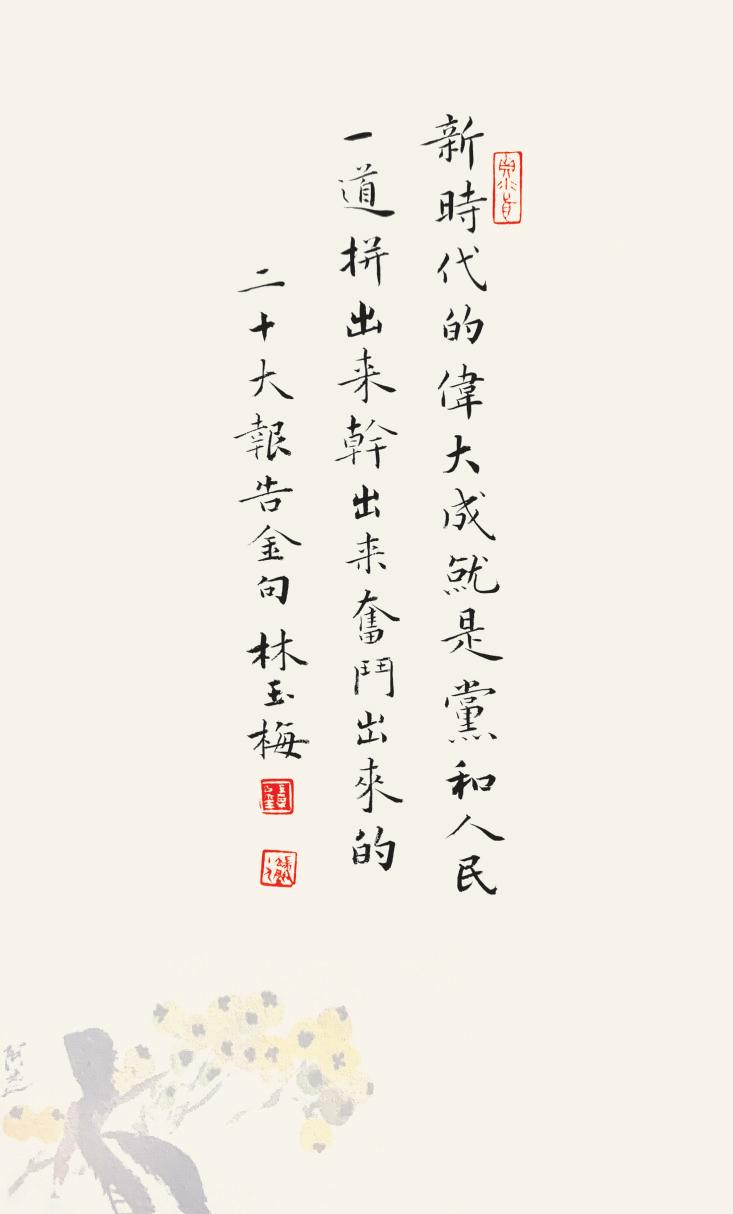 新時代的偉大成就是黨和人民
一道拼出来幹出来奮鬥出來的
二十大報告金句 林玉梅